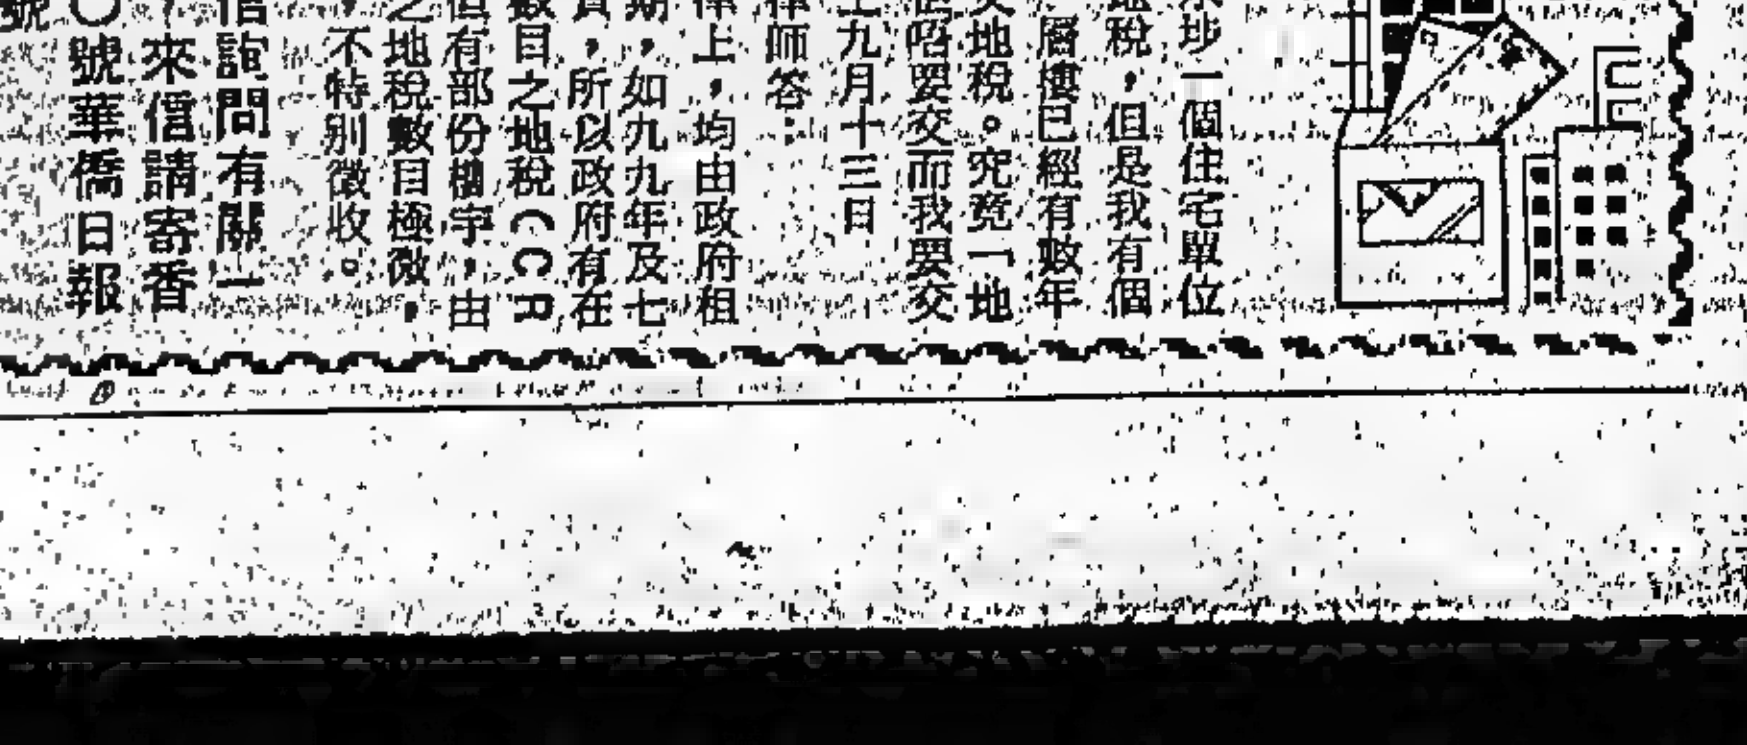 水埗一個住宅單位
地稅，但是我有個
層樓已經有數年
交地稅。究竟「地
唔要交而我要交
上九月十三日
律師答：
律上，均由政府租
期，如九九年及七
，所以政府有在
數目之地稅（ＣＲ
但有部份樓宇，由
之地稅數目極微，
，不特別徵收。
信詢問有關一
，來信請寄香
〇號華僑日報
號